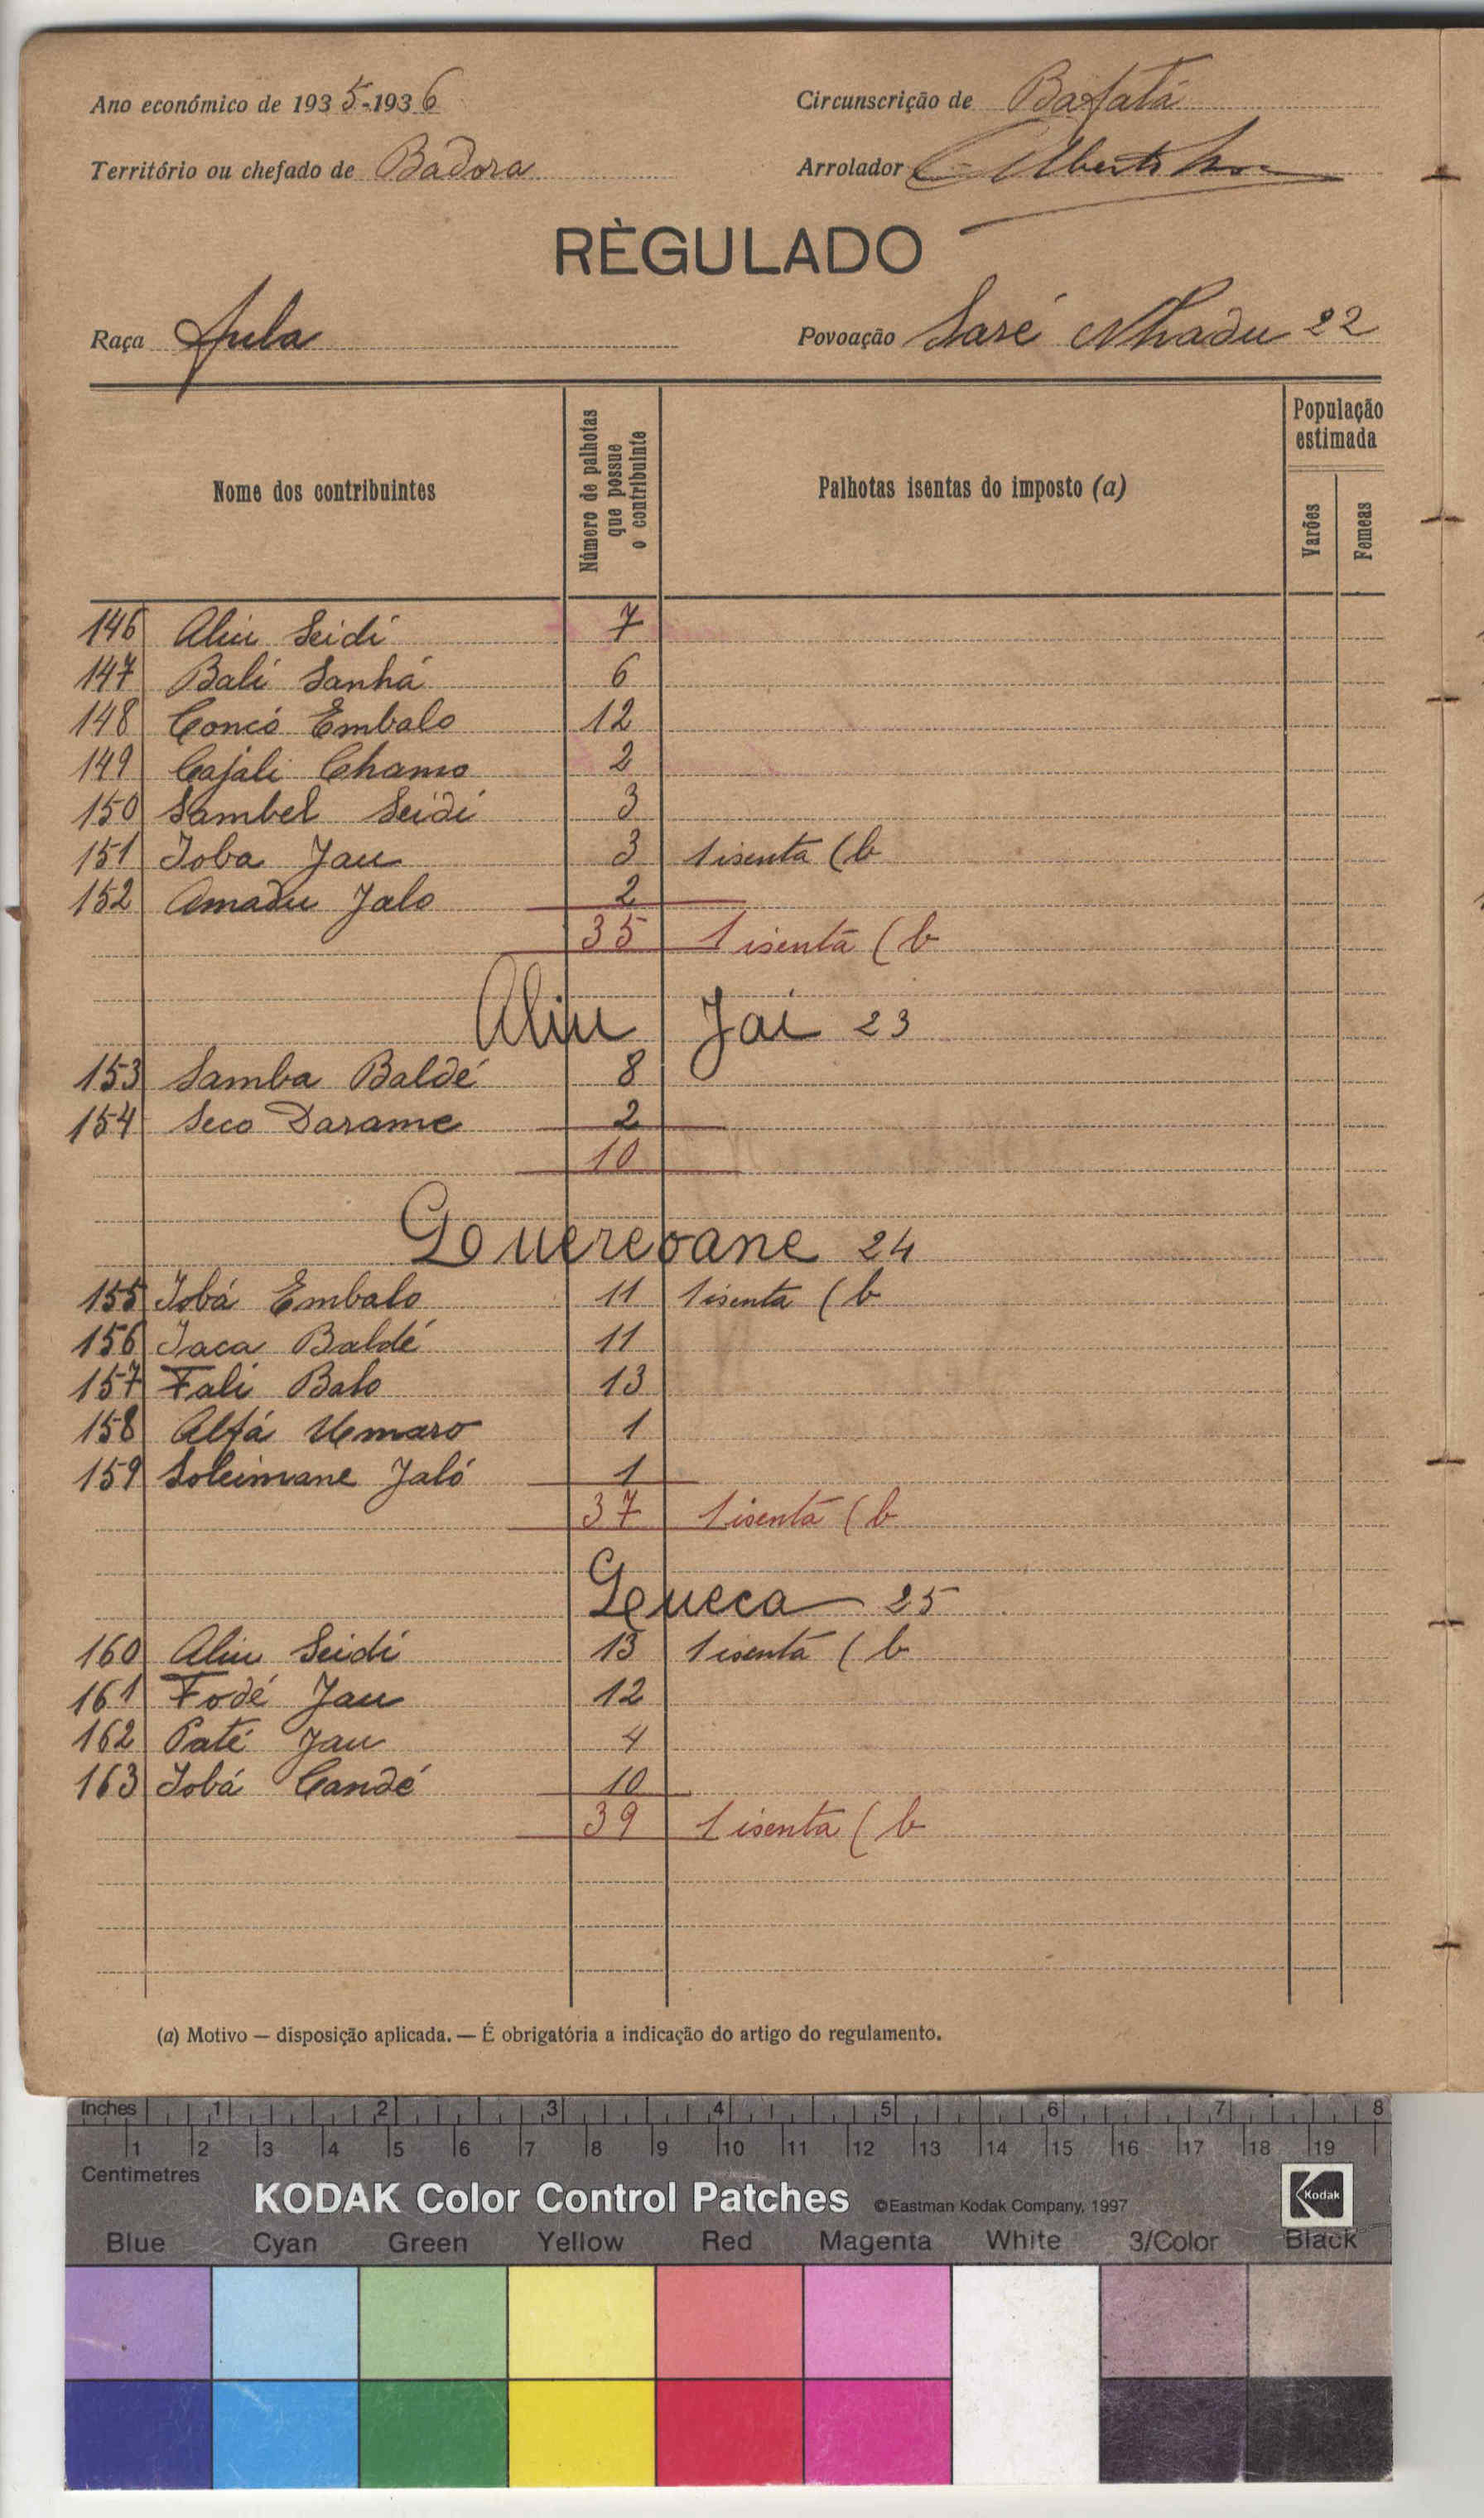 Ano económico de 1935-1936
Circunscrição de Bafatá
Território ou chefado de Badora
Arrolador Alberto
RÈGULADO
Raça Fula
Povoação Saré Nhadu 22
Nome dos contribuintes
Número de palhotas que possue o contribuinte
Palhotas isentas do imposto (a)
População estimada
Varões
Femeas
146 Aliu Seidi 7
147 Bali Sanhá 6
148 Concó Embalo 12
149 Cajali Chamo 2
150 Sambel Seidi 3
151 Ioba Jau 3 1 isenta (b
152 Amadu Jalo 2
35 1 isenta (b
Aliu Jai 23
153 Samba Baldé 8
154 Seco Darame 2
10
Querevane 24
155 Iobá Embalo 11 1 isenta (b
156 Iaca Baldé 11
157 Fali Balo 13
158 Alfá Umaro 1
159 Soleimane Jaló 1
37 1 isenta (b
Queca 25
160 Aliu Seidi 13 1 isenta (b
161 Fodé Jau 12
162 Paté Jau 4
163 Iobá Candé 10
39 1 isenta (b
(a) Motivo — disposição aplicada. — É obrigatória a indicação do artigo do regulamento.
Inches 1 2 3 4 5 6 7 8
1 2 3 4 5 6 7 8 9 10 11 12 13 14 15 16 17 18 19
Centimetres
KODAK Color Control Patches ©Eastman Kodak Company, 1997 Kodak
Blue Cyan Green Yellow Red Magenta White 3/Color Black